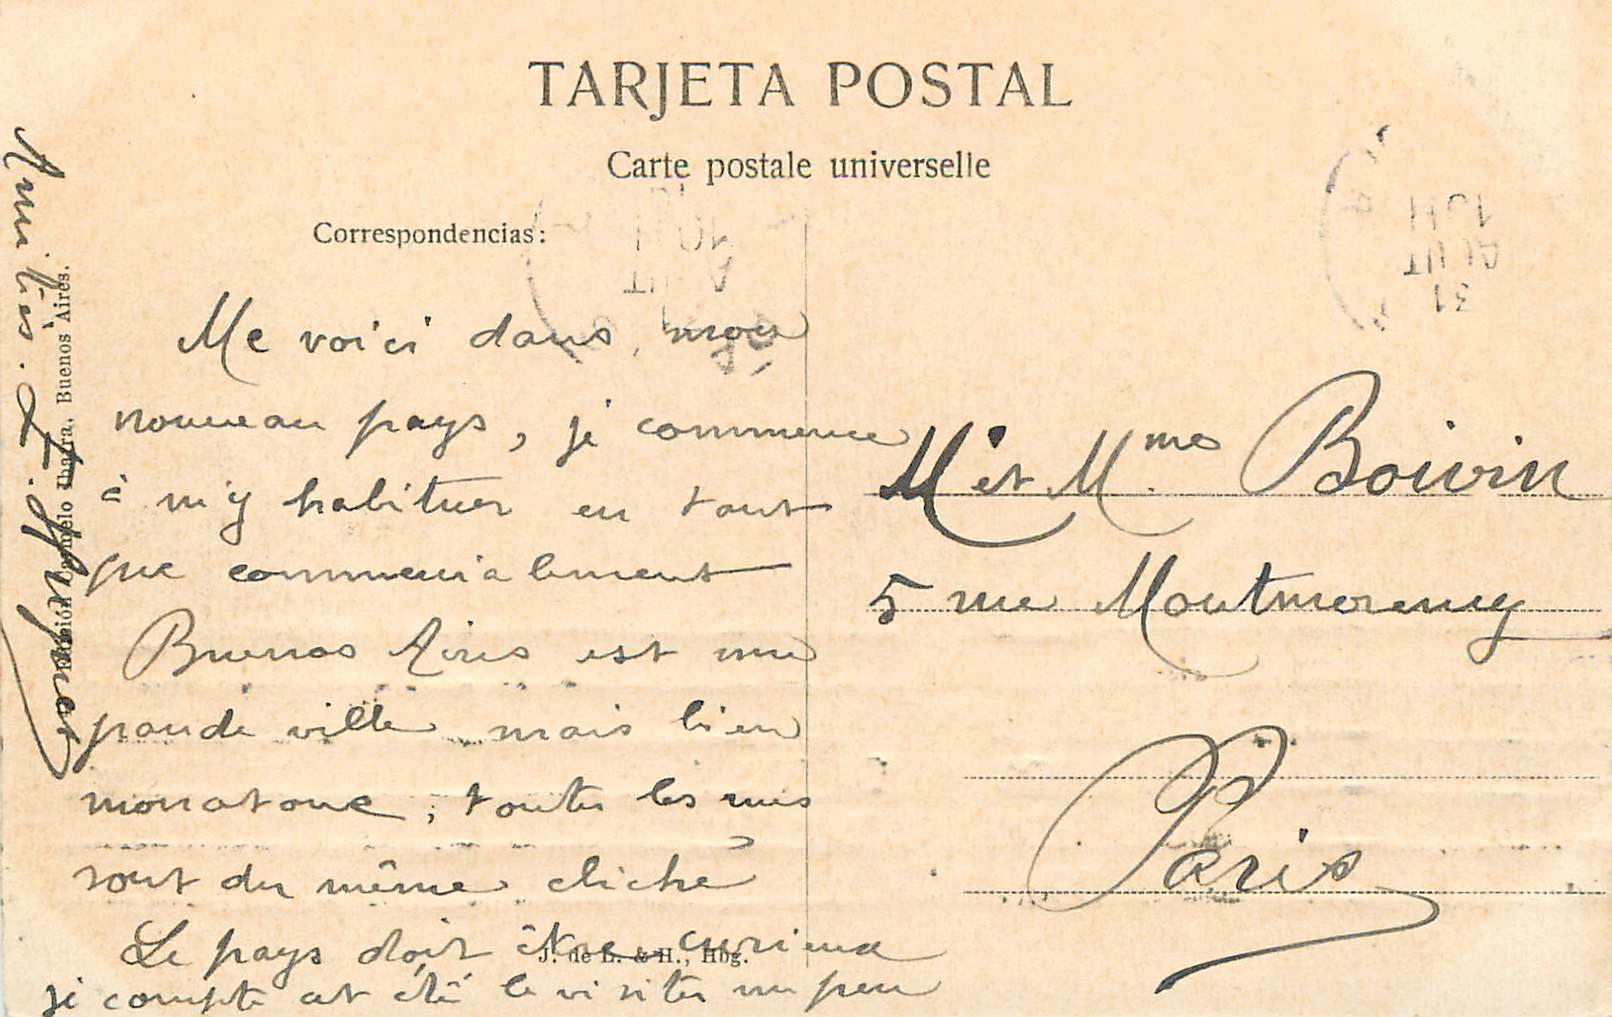 TARJETA POSTAL
Carte postale universelle
Correspondencias:
Me voici dans mon
nouveau pays, je commence
à m'y habituer en tant
que commercialement
Buenos Aires est une
grande ville mais bien
monotone, toutes les rues
sont du même cliché
Le pays doit être curieux
je compte cet été le visiter un peu
Amitiés.
Edición Carmelo Ibarra. Buenos Aires.
J. de L. & H., Hbg.
Mr et Mme Boivin
5 rue Montmorency
Paris
31
AOUT